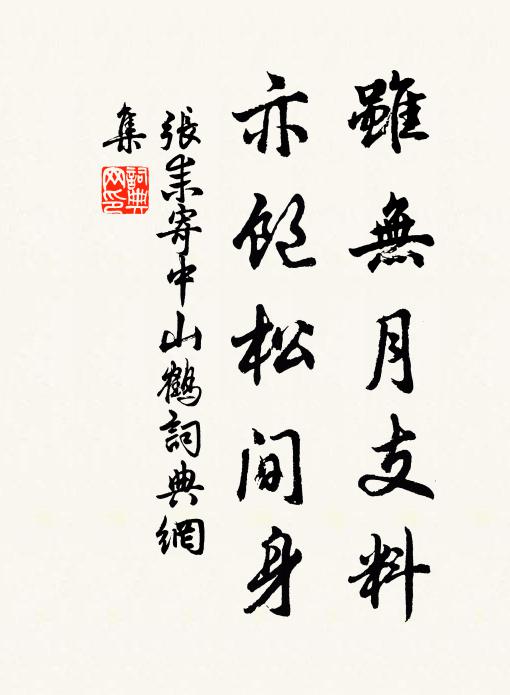 雖無月支料
亦飽松間身
張耒寄中山鶴詞典網
集
詞典
网印